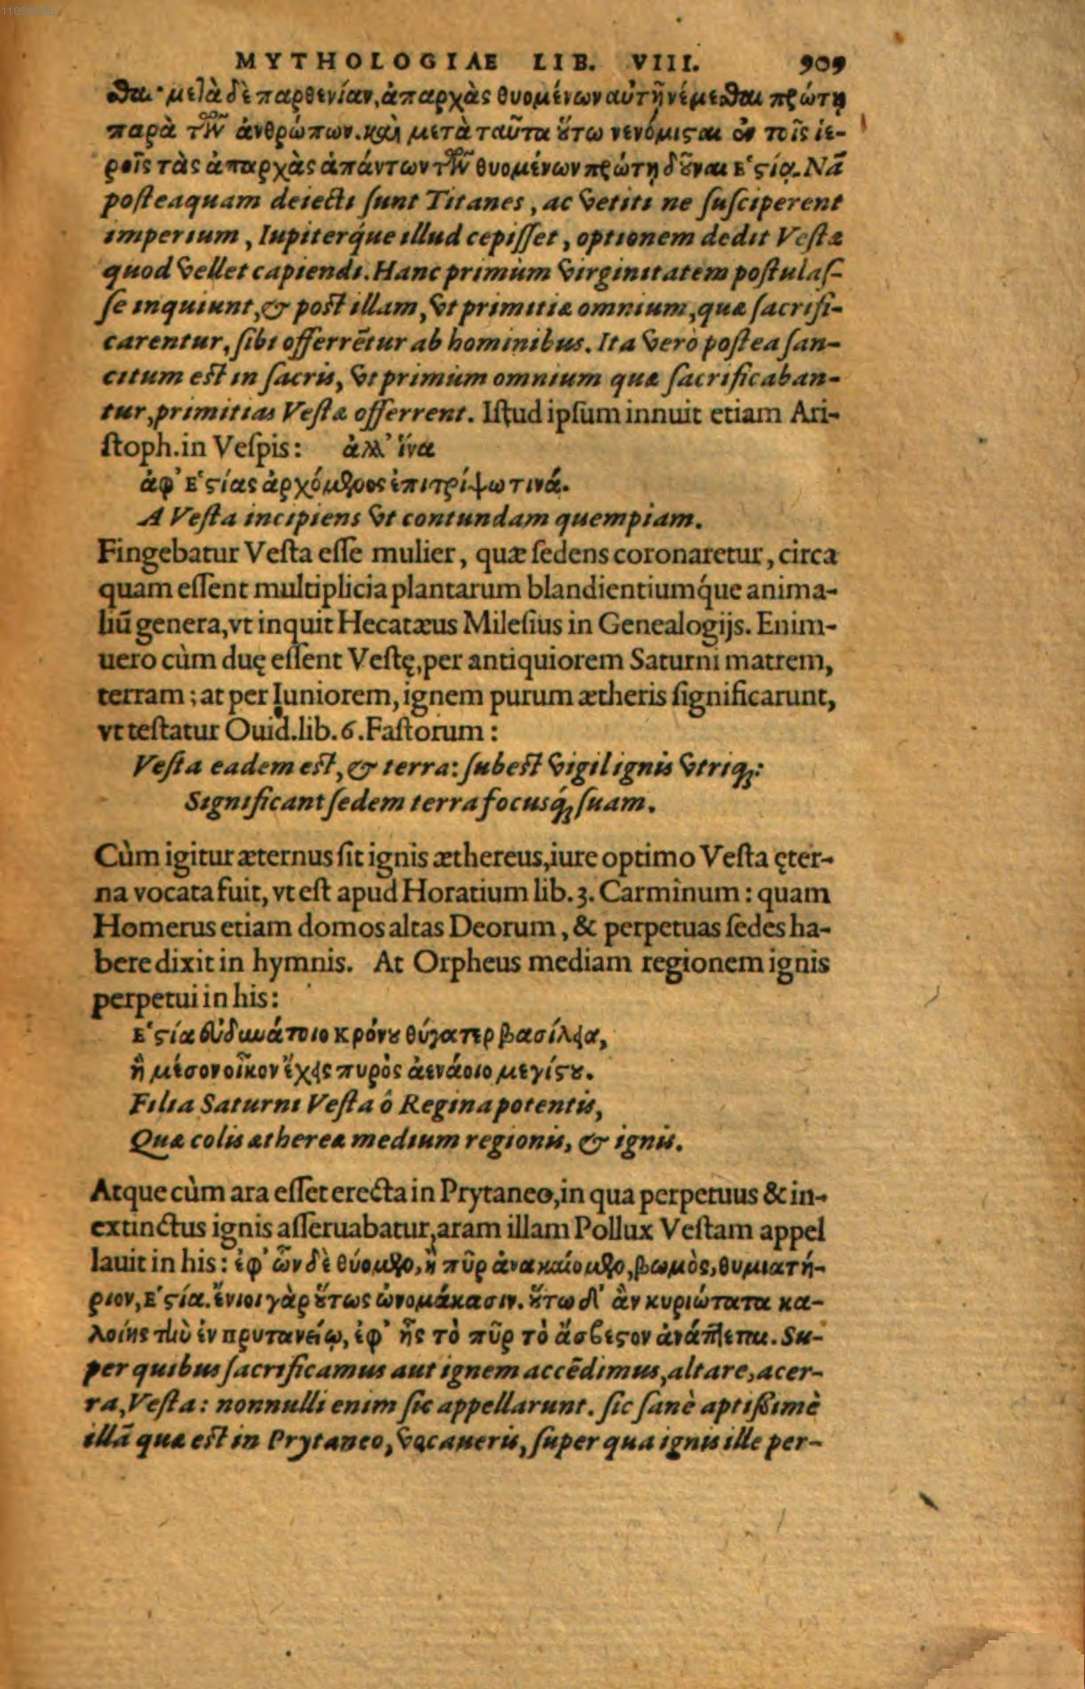 MYTHOLOGIAE LIB. VIII. 909
σθαι· μετὰ δὲ παρθενίαν, ἀπαρχὰς θυομένων αὐτῇ νέμεσθαι πρώτῃ
παρὰ τῶν ἀνθρώπων. καὶ μετὰ ταῦτα οὕτω νενόμισαι ἐν τοῖς ἱε-
ροῖς τὰς ἀπαρχὰς ἁπάντων τῶν θυομένων πρώτῃ δοῦναι Ἑστίᾳ. Nā
posteaquam deiecti sunt Titanes, ac vetiti ne susciperent
imperium, Iupiterq́ue illud cepisset, optionem dedit Vestæ
quod vellet capiendi. Hanc primùm virginitatem postulas-
se inquiunt, & post illam, vt primitiæ omnium, quæ sacrifi-
carentur, sibi offerrētur ab hominibus. Ita verò postea san-
citum est in sacris, vt primùm omnium quæ sacrificaban-
tur, primitias Vestæ offerrent. Istud ipsum innuit etiam Ari-
stoph. in Vespis: ἀλλ' ἵνα
ἀφ' Ἑστίας ἀρχόμενος ἐπιτρίψω τινά.
A Vesta incipiens vt contundam quempiam.
Fingebatur Vesta esse mulier, quæ sedens coronaretur, circa
quam essent multiplicia plantarum blandientiumq́ue anima-
liū genera, vt inquit Hecatæus Milesius in Genealogijs. Enim-
uero cùm duę essent Vestę, per antiquiorem Saturni matrem,
terram; at per Iuniorem, ignem purum ætheris significarunt,
vt testatur Ouid. lib. 6. Fastorum:
Vesta eadem est, & terra: subest vigil ignis vtriq;:
Significant sedem terra focusq́; suam.
Cùm igitur æternus sit ignis æthereus, iure optimo Vesta ęter-
na vocata fuit, vt est apud Horatium lib. 3. Carminum: quam
Homerus etiam domos altas Deorum, & perpetuas sedes ha-
bere dixit in hymnis. At Orpheus mediam regionem ignis
perpetui in his:
Ἑστία εὐδυνάτοιο κρόνου θύγατερ βασίλεια,
ἣ μέσον οἶκον ἔχεις πυρὸς ἀενάοιο μεγίστου.
Filia Saturni Vesta ô Regina potentis,
Quæ colis æthereæ medium regionis, & ignis.
Atque cùm ara esset erecta in Prytaneo, in qua perpetuus & in-
extinctus ignis asseruabatur, aram illam Pollux Vestam appel
lauit in his: ἐφ' ὧν δὲ θύομεν, ἢ πῦρ ἀνακαίομεν, βωμὸς, θυμιατή-
ριον, Ἑστία. ἔνιοι γὰρ οὕτως ὠνομάκασιν. οὕτω δ' ἂν κυριώτατα κα-
λοίης τὴν ἐν πρυτανείῳ, ἐφ' ἧς τὸ πῦρ τὸ ἄσβεστον ἀνάπτεται. Su-
per quibus sacrificamus aut ignem accēdimus, altare, acer-
ra, Vesta: nonnulli enim sic appellarunt. sic sanè aptissimè
illā quæ est in Prytaneo, vocaueris, super qua ignis ille per-